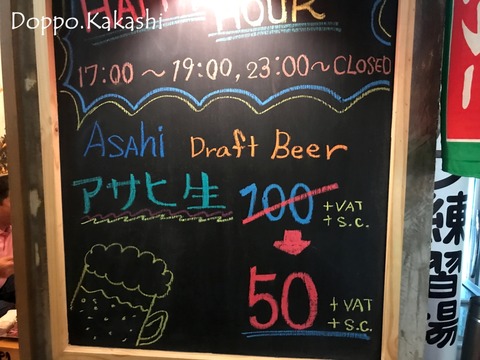 Doppo.Kakashi
HAPPY HOUR
17:00 ~ 19:00, 23:00~ CLOSED
ASAHI Draft Beer
アサヒ生 100 +VAT +S.C.
50 +VAT +S.C.
練習場